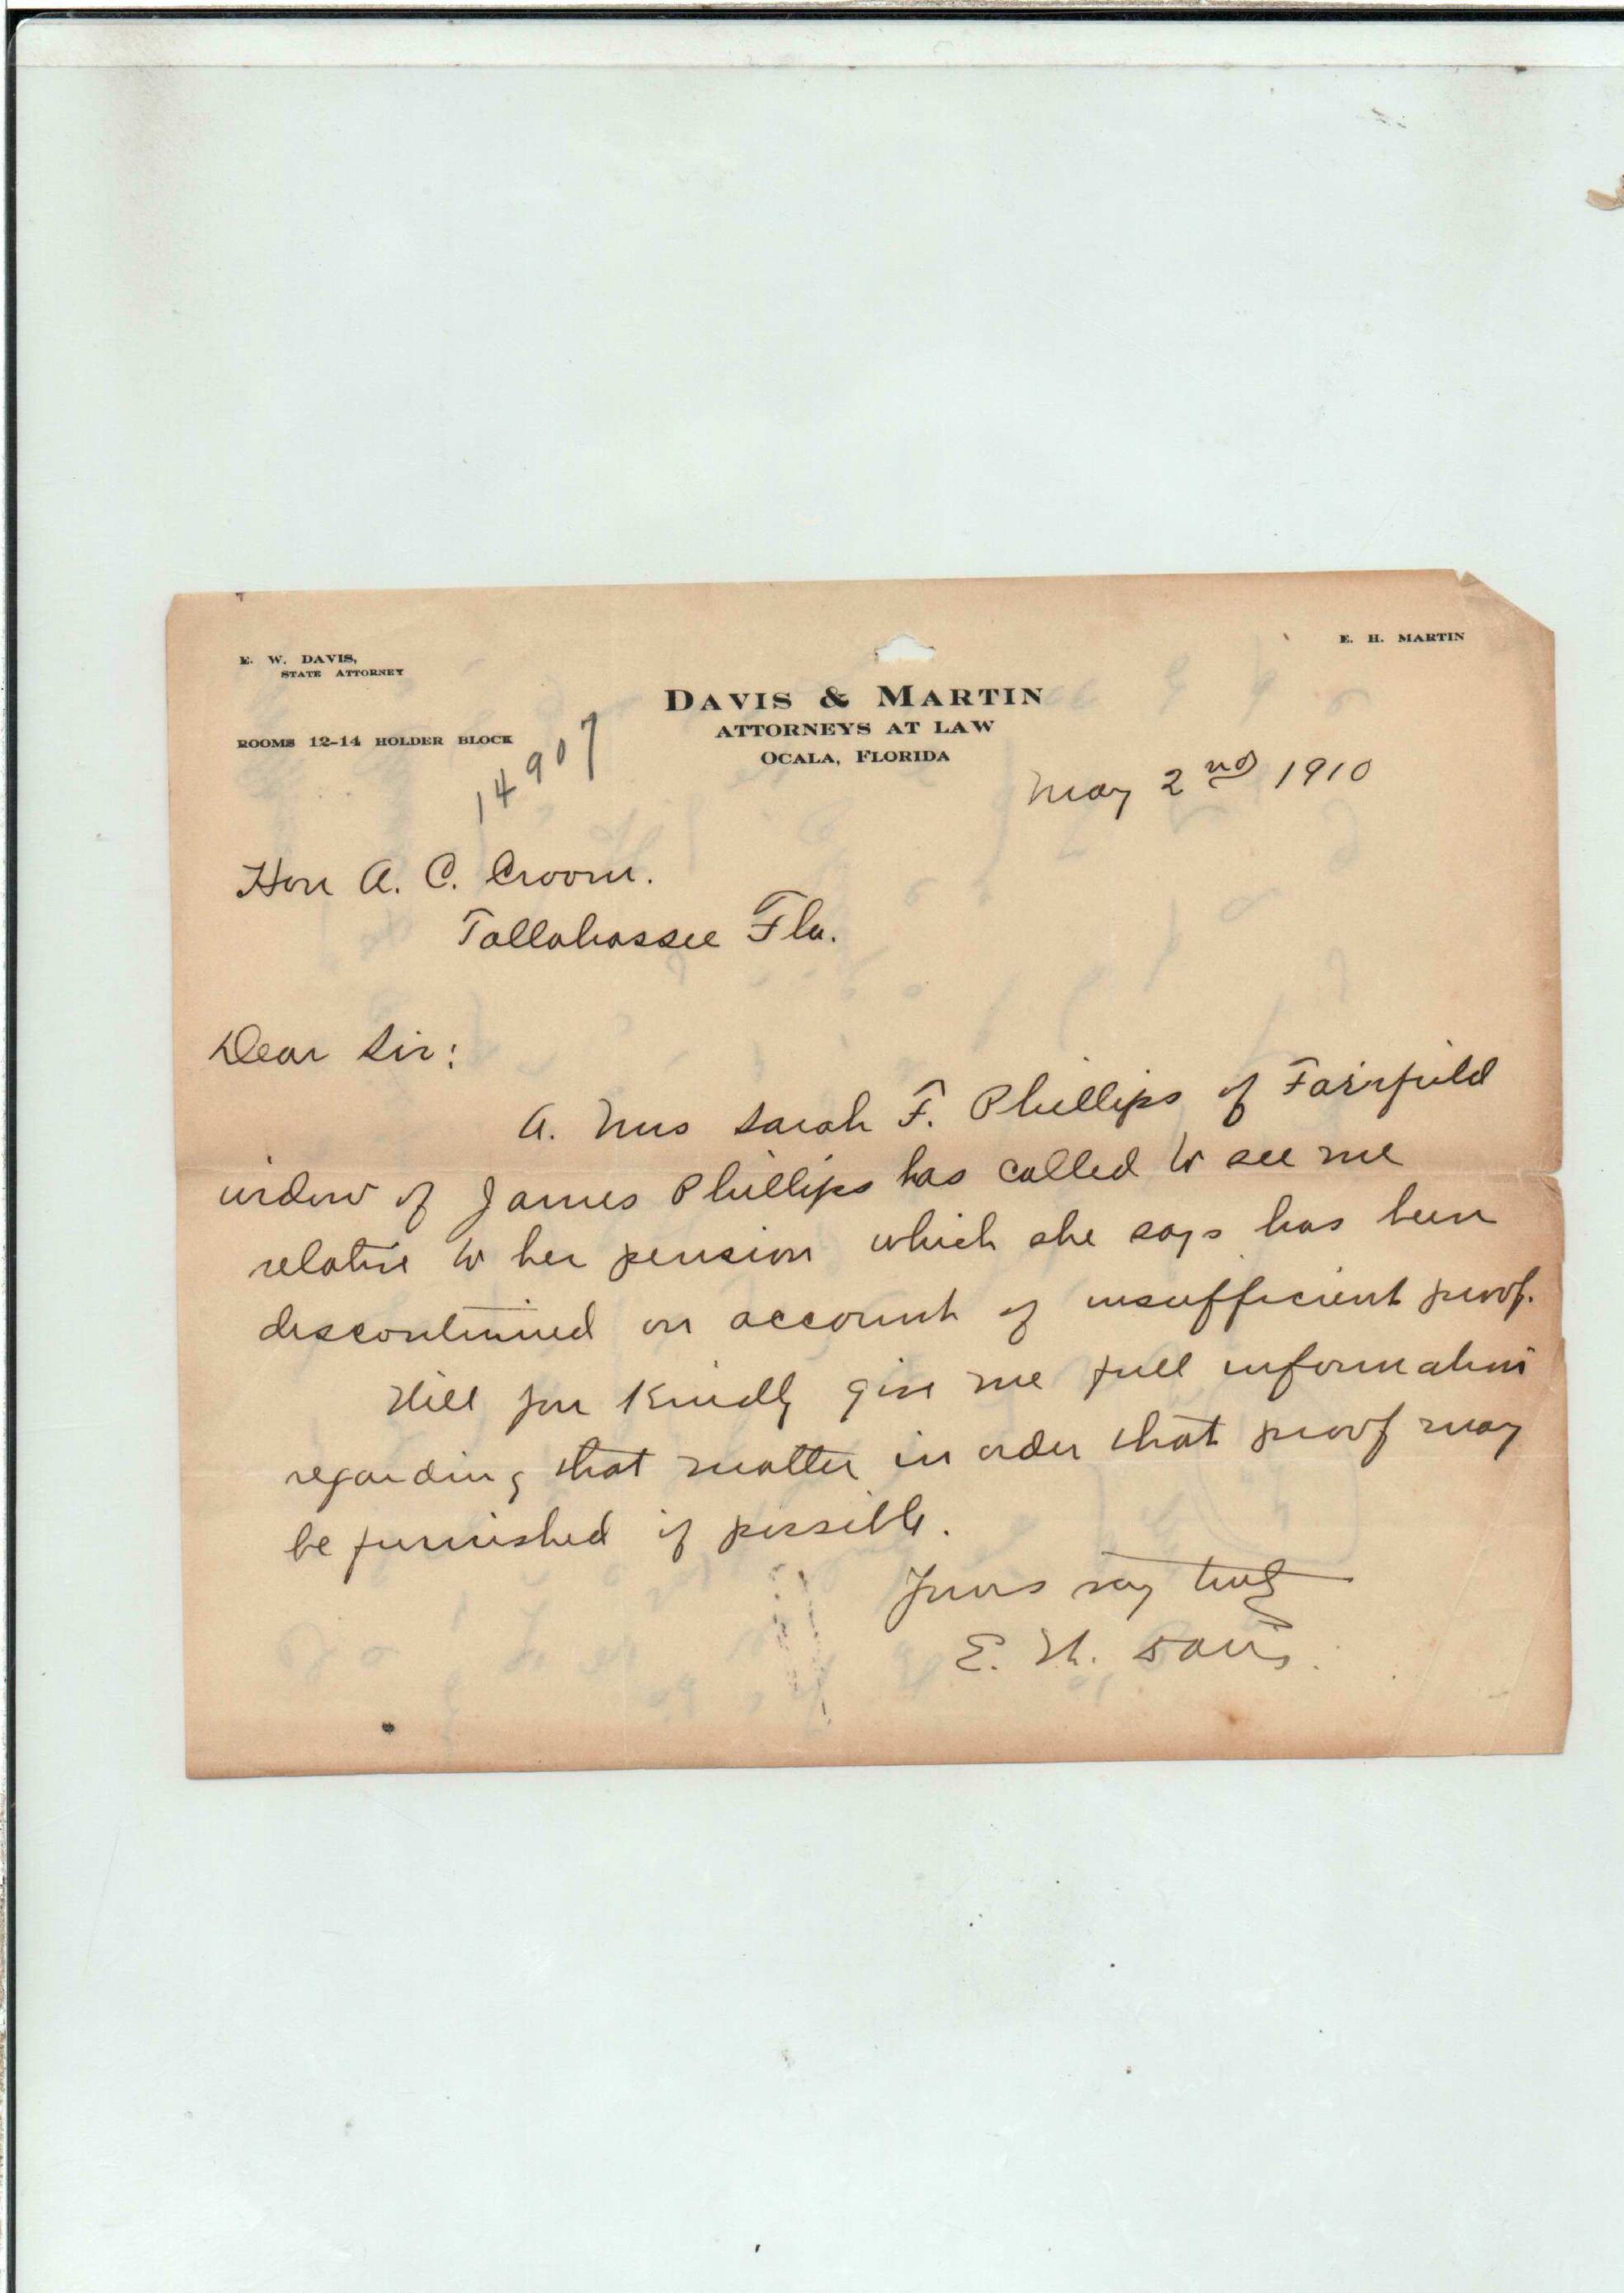 E. W. DAVIS,
STATE ATTORNEY
E. H. MARTIN
ROOMS 12-14 HOLDER BLOCK
DAVIS & MARTIN
ATTORNEYS AT LAW
OCALA, FLORIDA
14907
May 2nd 1910
Hon A. C. Croom.
Tallahassee Fla.
Dear Sir:
A. Mrs Sarah F. Phillips of Fairfield
widow of James Phillips has called to see me
relative to her pension which she says has been
discontinued on account of insufficient proof.
Will you kindly give me full information
regarding that matter in order that proof may
be furnished if possible.
Yours very truly
E. W. Davis.